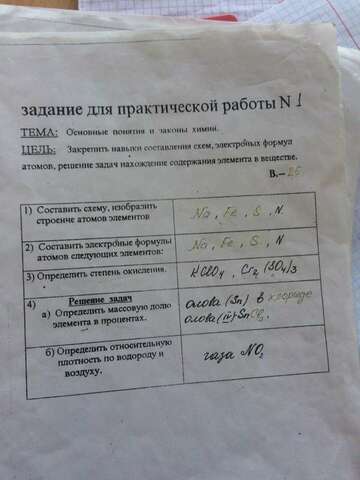 задание для практической работы N 1
ТЕМА: Основные понятия и законы химии.
ЦЕЛЬ: Закрепить навыки составления схем, электронных формул
атомов, решение задач нахождение содержания элемента в веществе.
В.– 25
1) Составить схему, изобразить
строение атомов элементов
Na, Fe, S, N.
2) Составить электронные формулы
атомов следующих элементов:
Na, Fe, S, N
3) Определить степень окисления.
HClO4, Cr2(SO4)3
4) Решение задач
а) Определить массовую долю
элемента в процентах.
олова (Sn) в хлориде
олова (II) SnCl2.
б) Определить относительную
плотность по водороду и
воздуху.
газа NO2